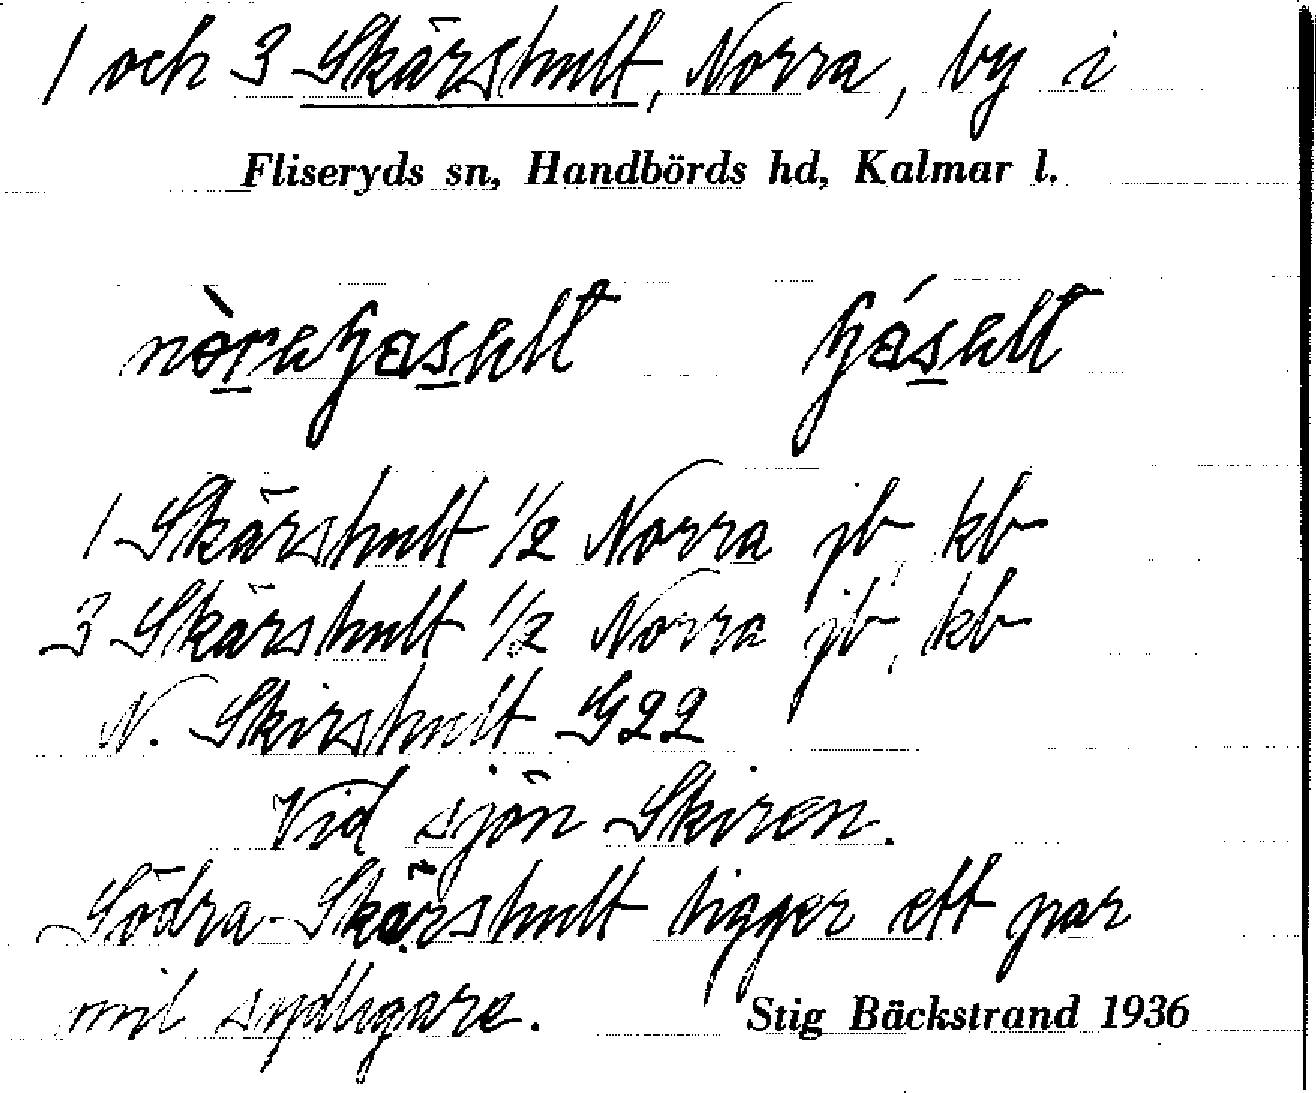 1 och 3 Skärshult, Norra, by i
Fliseryds sn, Handbörds hd, Kalmar l.
1 Skärshult 1/2 Norra jb, kb
3 Skärshult 1/2 Norra jb, kb
N. Skirshult G22
Vid sjön Skiren.
Södra Skärshult ligger ett par
mil sydligare.
Stig Bäckstrand 1936